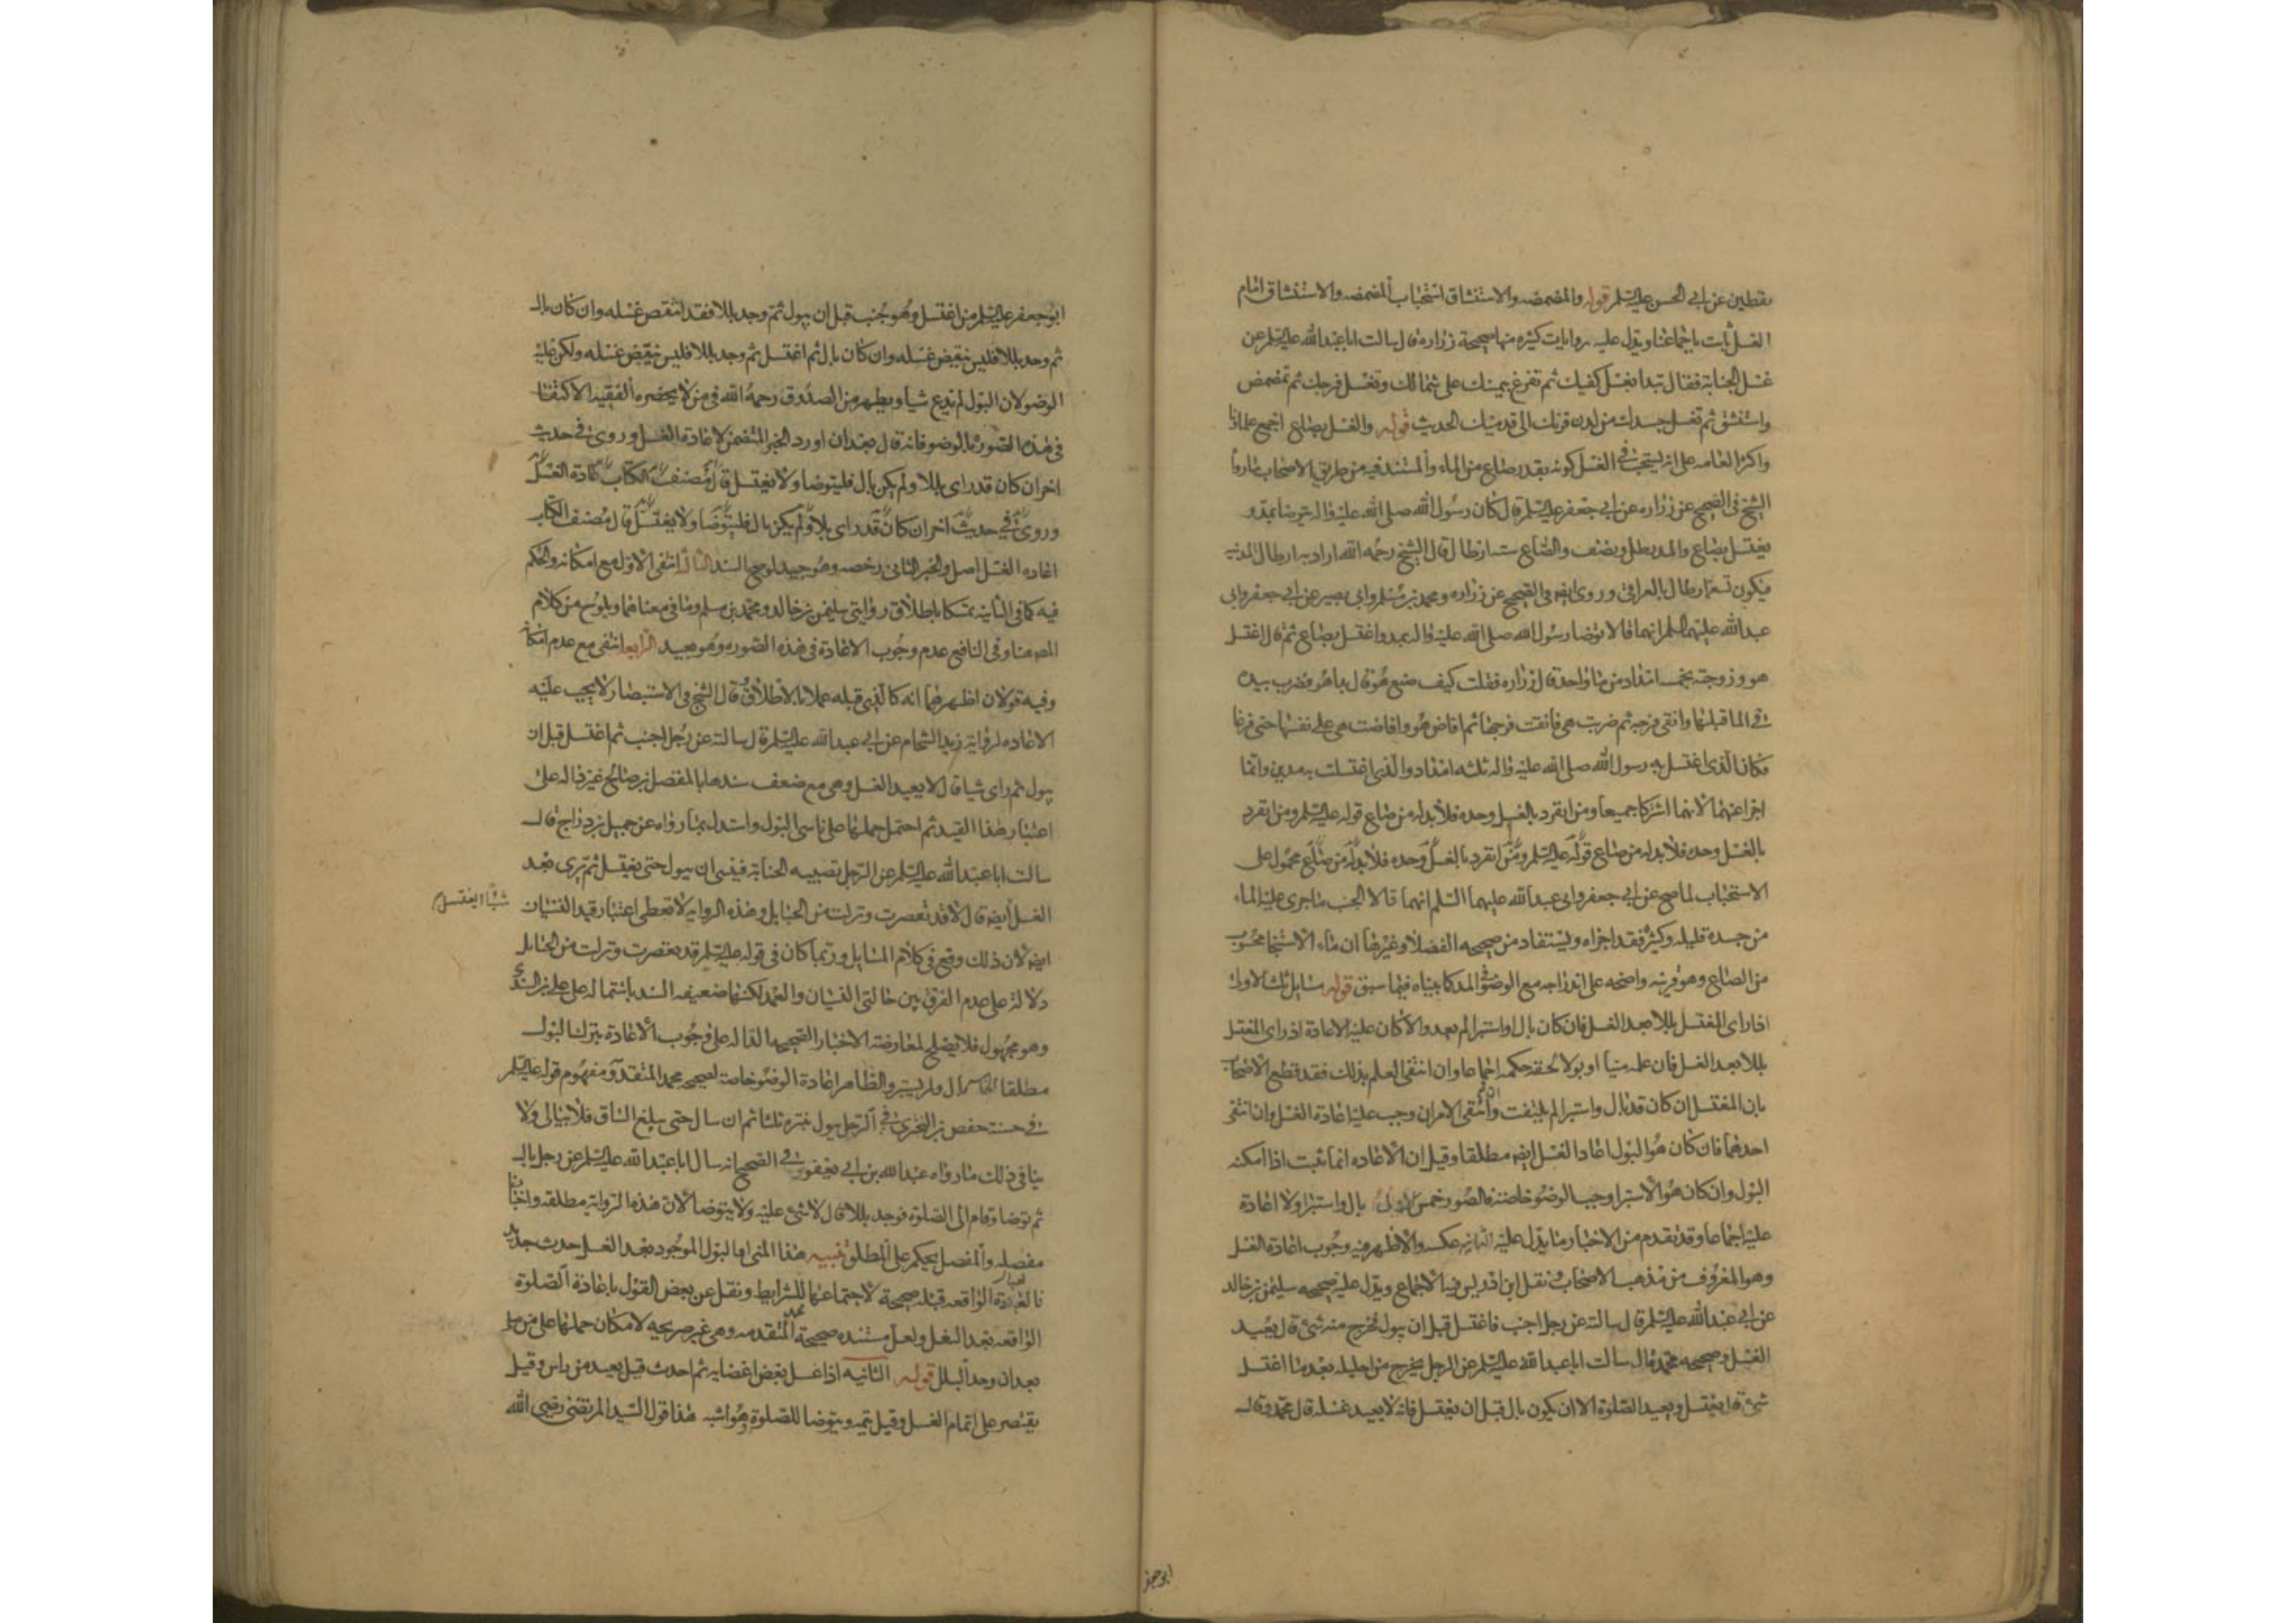 يقطين عن ابي الحسن عليه السلم قوله والمضمضه والاستنشاق استحباب المضمضه والاستنشاق امام
الغسل ثابت باجماعنا ويدل عليه روايات كثيره منها صحيحة زراره قال سالت ابا عبد الله عليه السلم عن
غسل الجنابة فقال تبدا بغسل كفيك ثم تفرغ بيمينك على شمالك وتغسل فرجك ثم تمضمض
واستنشق ثم تغسل جسدك من لدن قرنك الى قدميك الحديث قوله والغسل بصاع اجمع علماؤنا
واكثر العامه على انه يستحب في الغسل كونه بقدر صاع من الماء والمستند فيه من طريق الاصحاب ما رواه
الشيخ في الصحيح عن زراره عن ابي جعفر عليه السلم قال كان رسول الله صلى الله عليه واله يتوضا بمد و
يغتسل بصاع والمد رطل ونصف والصاع ستة ارطال قال الشيخ رحمه الله اراد به ارطال المدينه
فيكون تسعة ارطال بالعراقي وروى ايضه في الصحيح عن زراره ومحمد بن مسلم وابي بصير عن ابي جعفر وابي
عبد الله عليهما السلم انهما قالا توضا رسول الله صلى الله عليه واله بمد واغتسل بصاع ثم قال اغتسل
هو وزوجته بخمسة امداد من اناء واحد قال زراره فقلت كيف صنع هو قال بدا هو فضرب بيده
في الما قبلها وانقى فرجه ثم ضربت هي فانقت فرجها ثم افاض هو وافاضت هي على نفسها حتى فرغا
فكان الذي اغتسل به رسول الله صلى الله عليه واله ثلثه امداد والذي اغتسلت به مدين وانما
اجزا عنهما لانهما اشتركا جميعا ومن انفرد بالغسل وحده فلا بد له من صاع قوله عليه السلم ومن انفرد
بالغسل وحده فلا بد له من صاع قوله عليه السلم ومن انفرد بالغسل وحده فلا بد له من صاع محمول على
الاستحباب لما صح عن ابي جعفر وابي عبد الله عليهما السلم انهما قالا الجنب ما جرى عليه الماء
من جسده قليله وكثيره فقد اجزاه ويستفاد من صحيحه الفضلا وغيرها ان ماء الاستنجا محسوب
من الصاع وهو قرينه واضحه على اندراجه مع الوضو في المد كما بيناه فيما سبق قوله مسايل ثلث الاولى
اذا راى المغتسل بللا بعد الغسل فان كان بال او استبرا لم يعد والا كان عليه الاعادة اذ راى المغتسل
بللا بعد الغسل فان علمه منيا او بولا لحقه حكمه اجماعا وان انتفى العلم بذلك فقد قطع الاصحاب
بان المغتسل ان كان قد بال واستبرا لم يلتفت وان انتفى الامران وجب عليه اعادة الغسل وان انتفى
احدهما فان كان هو البول اعاد الغسل ايضه مطلقا وقيل ان الاعاده انما تجب اذا امكنه
البول وان كان هو الاستبرا وجب الوضو خاصة فالصور خمس الاولى بال واستبرا ولا اعادة
عليه اجماعا وقد تقدم من الاخبار ما يدل عليه الثانيه عكسه والاظهر فيه وجوب اعادة الغسل
وهو المعروف من مذهب الاصحاب ونقل ابن ادريس فيه الاجماع ويدل عليه صحيحه سليمن بن خالد
عن ابي عبد الله عليه السلم قال سالته عن رجل اجنب فاغتسل قبل ان يبول فخرج منه شئ قال يعيد
الغسل وصحيحه محمد قال سالت ابا عبد الله عليه السلم عن الرجل يخرج من احليله بعد ما اغتسل
شئ قال يغتسل ويعيد الصلوة الا ان يكون بال قبل ان يغتسل فانه لا يعيد غسله قال محمد وقال
ابو جعفر
ابو جعفر عليه السلم من اغتسل وهو جنب قبل ان يبول ثم وجد بللا فقد انتقض غسله وان كان بال
ثم وجد بللا فليس ينقض غسله وان كان بال ثم اغتسل ثم وجد بللا فليس ينقض غسله ولكن عليه
الوضو لان البول لم يدع شيا ويظهر من الصدوق رحمه الله في من لا يحضره الفقيه الاكتفا
في هذه الصورة بالوضو فانه قال بعد ان اورد الخبر المتضمن لاعادة الغسل وروى في حديث
اخر ان كان قد راى بللا ولم يكن بال فليتوضا ولا يغتسل قال مصنف الكتاب اعادة الغسل
وروى في حديث اخر ان كان قد راى بللا ولم يكن بال فليتوضا ولا يغتسل قال مصنف الكتاب
اعاده الغسل اصل والخبر الثاني رخصه وهو جيد لو صح السند الثالثة انتفى الاول مع امكانه والحكم
فيه كما في الثانيه تمسكا باطلاق روايتي سليمن بن خالد ومحمد بن مسلم وما في معناهما ويلوح من كلام
المصه هنا وفي النافع عدم وجوب الاعادة في هذه الصوره وهو بعيد الرابعة انتفى مع عدم امكانه
وفيه قولان اظهرهما انه كالذي قبله عملا بالاطلاق وقال الشيخ في الاستبصار لا يجب عليه
الاعاده لرواية زيد الشحام عن ابي عبد الله عليه السلم قال سالته عن رجل اجنب ثم اغتسل قبل ان
يبول ثم راى شيا قال لا يعيد الغسل وهي مع ضعف سندها بالمفضل بن صالح غير داله على
اعتبار هذا القيد ثم احتمل حملها على ناسي البول واستدل بما رواه عن جميل بن دراج قال
سالت ابا عبد الله عليه السلم عن الرجل تصيبه الجنابة فينسى ان يبول حتى يغتسل ثم يرى بعد
الغسل شيئا ايغتسل ايضه قال لا قد تعصرت ونزلت من الحبايل وهذه الروايه لا تعطى اعتبار قيد النسيان
ايضه لان ذلك وقع في كلام السايل وربما كان في قوله عليه السلم قد تعصرت ونزلت من الحبايل
دلالة على عدم الفرق بين حالتي النسيان والعمد لكنها ضعيفه السند باشتماله على علي بن السندي
وهو مجهول فلا يصلح لمعارضة الاخبار الصحيحه الداله على وجوب الاعادة بترك البول
مطلقا الخامسة بال ولم يستبر والظاهر اعادة الوضو خاصة لصحيحه محمد المتقدمة ومفهوم قوله عليه السلم
في حسنة حفص بن البختري في الرجل يبول ينتره ثلثا ثم ان سال حتى يبلغ الساق فلا يبالي ولا
ينافي ذلك ما رواه عبد الله بن ابي يعفور في الصحيح انه سال ابا عبد الله عليه السلم عن رجل بال
ثم توضا وقام الى الصلوة فوجد بللا قال لا شئ عليه ولا يتوضا لان هذه الرواية مطلقه واخبارنا
مفصله والمفصل يحكم على المطلق تنبيه هذا المني او البول الموجود بعد الغسل حدث جديد
فالعبادة الواقعه قبله صحيحة لاجتماعها للشرايط ونقل عن بعض القول باعادة الصلوة
الواقعه بعد الغسل ولعل مستنده صحيحة محمد المتقدمه وهي غير صريحه لامكان حملها على من صلى
بعد ان وجد البلل قوله الثانيه اذا غسل بعض اعضايه ثم احدث قيل يعيد من راس وقيل
يقتصر على اتمام الغسل وقيل يتمه ويتوضا للصلوة وهو اشبه هذا قول السيد المرتضى رضي الله